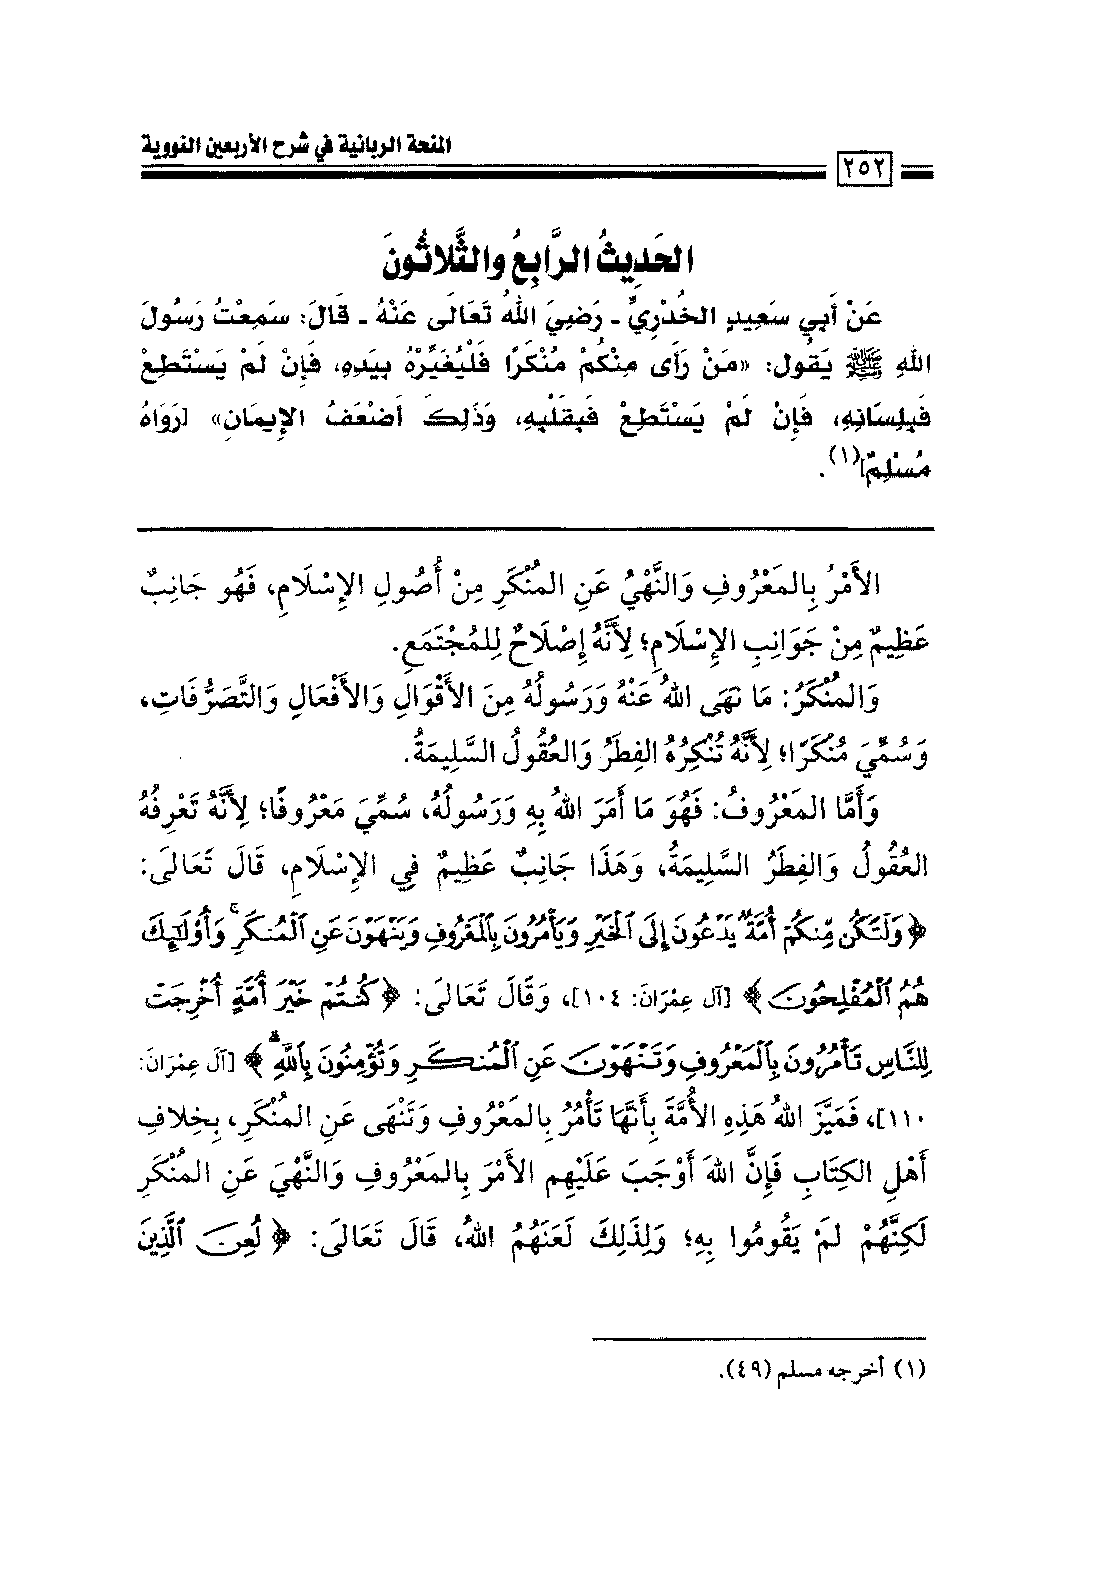 المنحة الربانية في شرح الأربعين النووية
٢٥٢
الحَدِيثُ الرَّابِعُ والثَّلاثُونَ
عَنْ أَبِي سَعِيدٍ الخُدْرِيِّ ـ رَضِيَ اللهُ تَعَالَى عَنْهُ ـ قَالَ: سَمِعْتُ رَسُولَ
اللهِ ﷺ يَقُولُ: «مَنْ رَأَى مِنْكُمْ مُنْكَرًا فَلْيُغَيِّرْهُ بِيَدِهِ، فَإِنْ لَمْ يَسْتَطِعْ
فَبِلِسَانِهِ، فَإِنْ لَمْ يَسْتَطِعْ فَبِقَلْبِهِ، وَذَلِكَ أَضْعَفُ الإِيمَانِ» [رَوَاهُ
مُسْلِمٌ](١).
الأَمْرُ بِالمَعْرُوفِ وَالنَّهْيُ عَنِ المُنْكَرِ مِنْ أُصُولِ الإِسْلَامِ، فَهُو جَانِبٌ
عَظِيمٌ مِنْ جَوَانِبِ الإِسْلَامِ؛ لِأَنَّهُ إِصْلَاحٌ لِلمُجْتَمَعِ.
وَالمُنْكَرُ: مَا نَهَى اللهُ عَنْهُ وَرَسُولُهُ مِنَ الأَقْوَالِ وَالأَفْعَالِ وَالتَّصَرُّفَاتِ،
وَسُمِّيَ مُنْكَرًا؛ لِأَنَّهُ تُنْكِرُهُ الفِطَرُ وَالعُقُولُ السَّلِيمَةُ.
وَأَمَّا المَعْرُوفُ: فَهُوَ مَا أَمَرَ اللهُ بِهِ وَرَسُولُهُ، سُمِّيَ مَعْرُوفًا؛ لِأَنَّهُ تَعْرِفُهُ
العُقُولُ وَالفِطَرُ السَّلِيمَةُ، وَهَذَا جَانِبٌ عَظِيمٌ فِي الإِسْلَامِ، قَالَ تَعَالَى:
﴿وَلْتَكُن مِّنكُمْ أُمَّةٌ يَدْعُونَ إِلَى ٱلْخَيْرِ وَيَأْمُرُونَ بِٱلْمَعْرُوفِ وَيَنْهَوْنَ عَنِ ٱلْمُنكَرِ ۚ وَأُوْلَٰٓئِكَ
هُمُ ٱلْمُفْلِحُونَ﴾ [آل عِمْرَانَ: ١٠٤]، وَقَالَ تَعَالَى: ﴿كُنتُمْ خَيْرَ أُمَّةٍ أُخْرِجَتْ
لِلنَّاسِ تَأْمُرُونَ بِٱلْمَعْرُوفِ وَتَنْهَوْنَ عَنِ ٱلْمُنكَرِ وَتُؤْمِنُونَ بِٱللَّهِ ۗ﴾ [آل عِمْرَانَ:
١١٠]، فَمَيَّزَ اللهُ هَذِهِ الأُمَّةَ بِأَنَّهَا تَأْمُرُ بِالمَعْرُوفِ وَتَنْهَى عَنِ المُنْكَرِ، بِخِلَافِ
أَهْلِ الكِتَابِ فَإِنَّ اللهَ أَوْجَبَ عَلَيْهِم الأَمْرَ بِالمَعْرُوفِ وَالنَّهْيَ عَنِ المُنْكَرِ
لَكِنَّهُمْ لَمْ يَقُومُوا بِهِ؛ وَلِذَلِكَ لَعَنَهُمُ اللهُ، قَالَ تَعَالَى: ﴿لُعِنَ ٱلَّذِينَ
(١) أخرجه مسلم (٤٩).